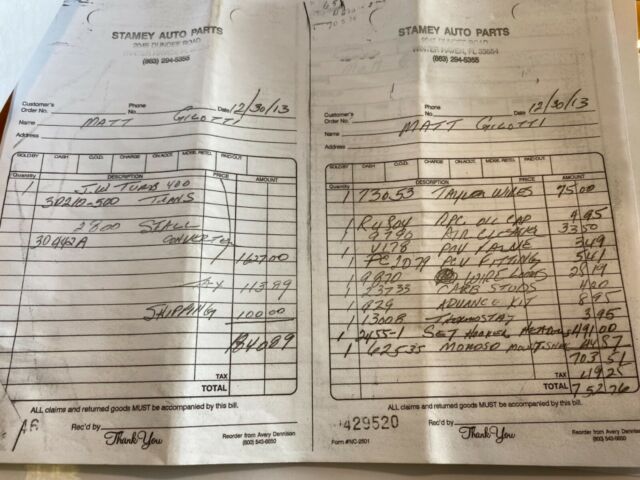 STAMEY AUTO PARTS
2045 DUNDEE ROAD
WINTER HAVEN, FL
(863) 294-5355
Customer's
Order No.
Phone
No.
Date 12/30/13
Name MATT GILOTTI
Address
SOLD BY CASH C.O.D. CHARGE ON ACCT. MDSE. RETD. PAID OUT
Quantity DESCRIPTION PRICE AMOUNT
1 JW TURBO 400
30210-500 TRANS
2800 STALL
30442A CONVERTER
1627.00
113.89
SHIPPING 100.00
1840.89
TAX
TOTAL
ALL claims and returned goods MUST be accompanied by this bill.
Rec'd by
Thank You
Reorder from Avery Dennison
(800) 543-6650
STAMEY AUTO PARTS
2045 DUNDEE ROAD
WINTER HAVEN, FL 33884
(863) 294-5355
Customer's
Order No.
Phone
No.
Date 12/30/13
Name MATT GILOTTI
Address
SOLD BY CASH C.O.D. CHARGE ON ACCT. MDSE. RETD. PAID OUT
Quantity DESCRIPTION PRICE AMOUNT
1 73053 TAYLOR WIRES 75.00
1 RPC OIL CAP 4.95
1 AIR CLEANER 33.50
1 V178 PCV VALVE 3.49
1 PCV FITTING 5.41
1 9870
1 23733 CARB STUDS
1 929 ADVANCE KIT 8.95
1 1300B THERMOSTAT 3.95
1 2455-1 SET HOOKER HEADERS 491.00
1 62535 MOROSO
703.51
TAX
TOTAL 752.76
ALL claims and returned goods MUST be accompanied by this bill.
429520
Rec'd by
Thank You
Form #NC-2501
Reorder from Avery Dennison
(800) 543-6650